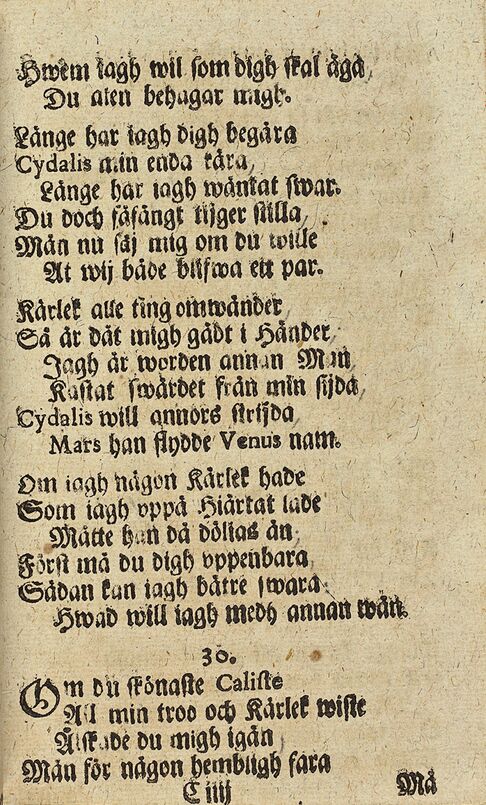 Hwem iagh wil som digh skal äga,
Du alen behagar migh.
Länge har iagh digh begära
Cydalis min enda kära,
Länge har iagh wäntat swar.
Du doch fåfängt tijger stilla,
Män nu säj mig om du wille
At wij både blifwa ett par.
Kärlek alle ting omwänder
Så är dät migh gådt i Händer,
Jagh är worden annan Man
Kastat swärdet från min sijda,
Cydalis will annors strijda
Mars han flydde Venus nam.
Om iagh någon Kärlek hade
Som iagh vppå Hiärtat lade
Måtte han då dölias än,
Först må du digh vppenbara,
Sådan kan iagh bätre swara
Hwad will iagh medh annan wän.
30.
Om du skönaste Caliste
All min troo och Kärlek wiste
Älskade du migh igän,
Män för någon hembligh fara
C iiij Må